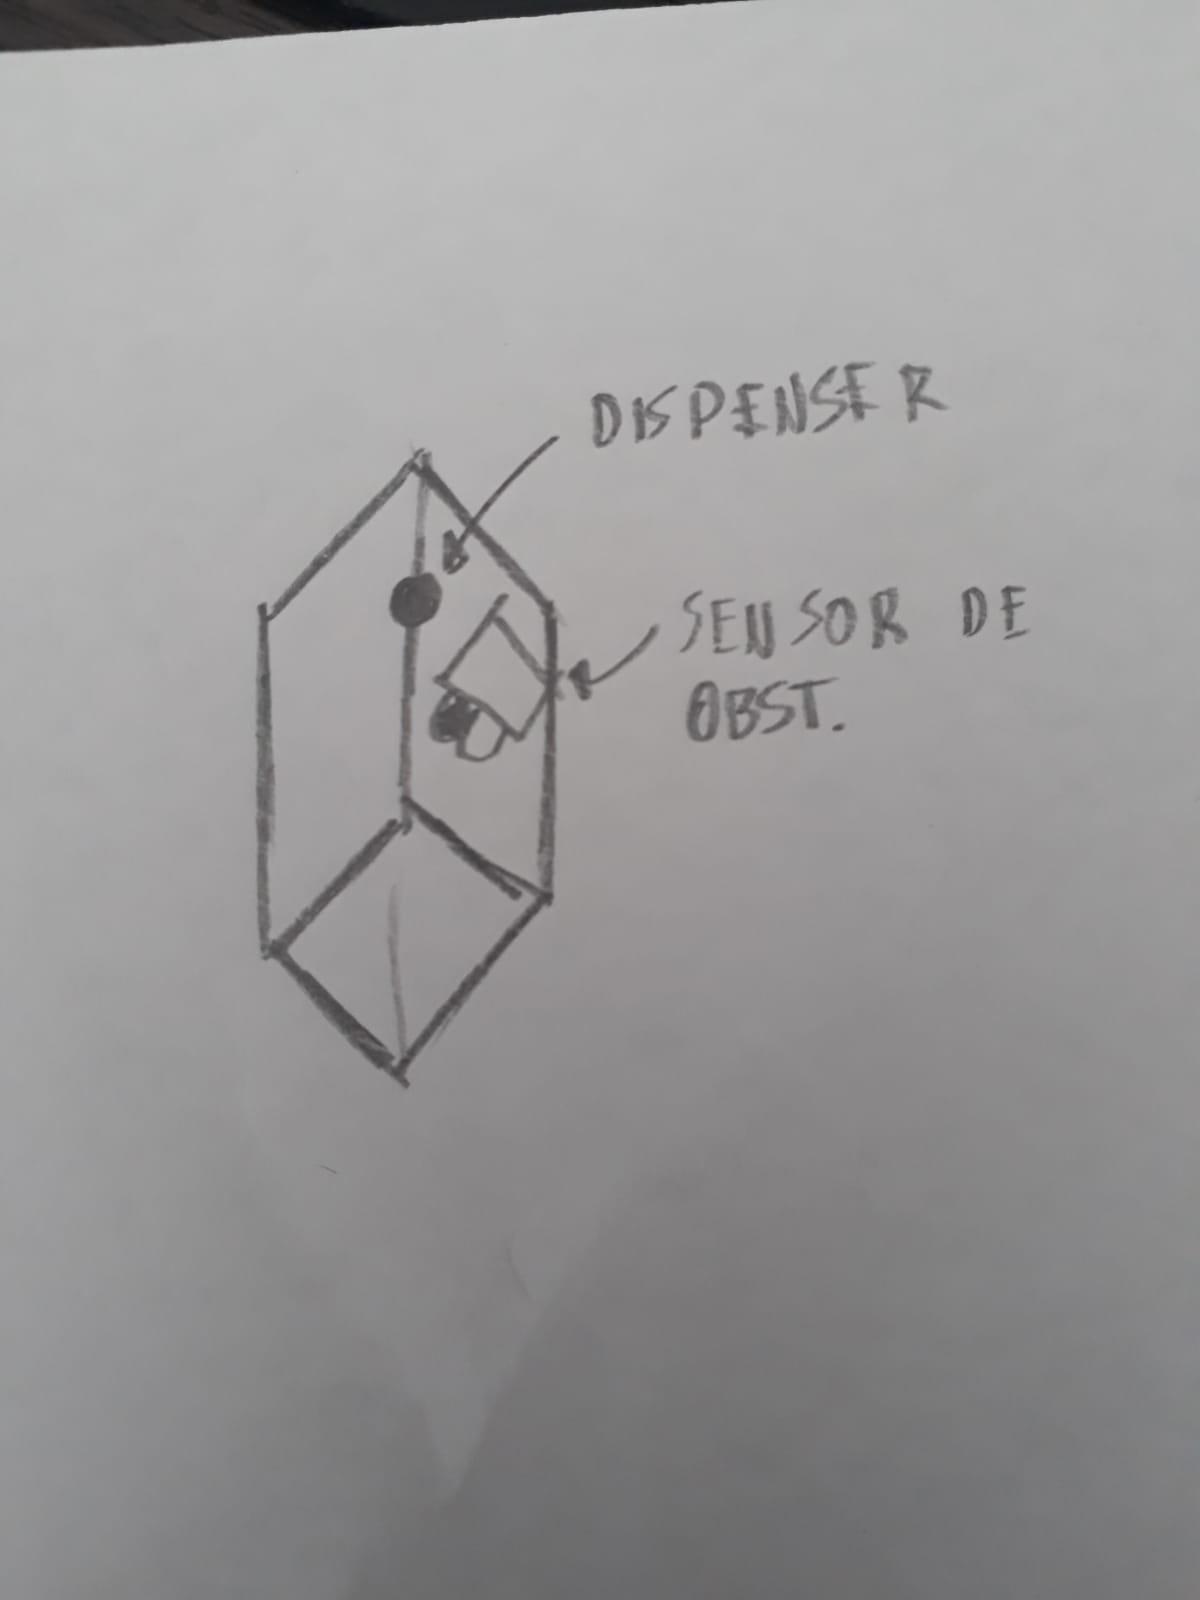 DISPENSER
SENSOR DE
OBST.